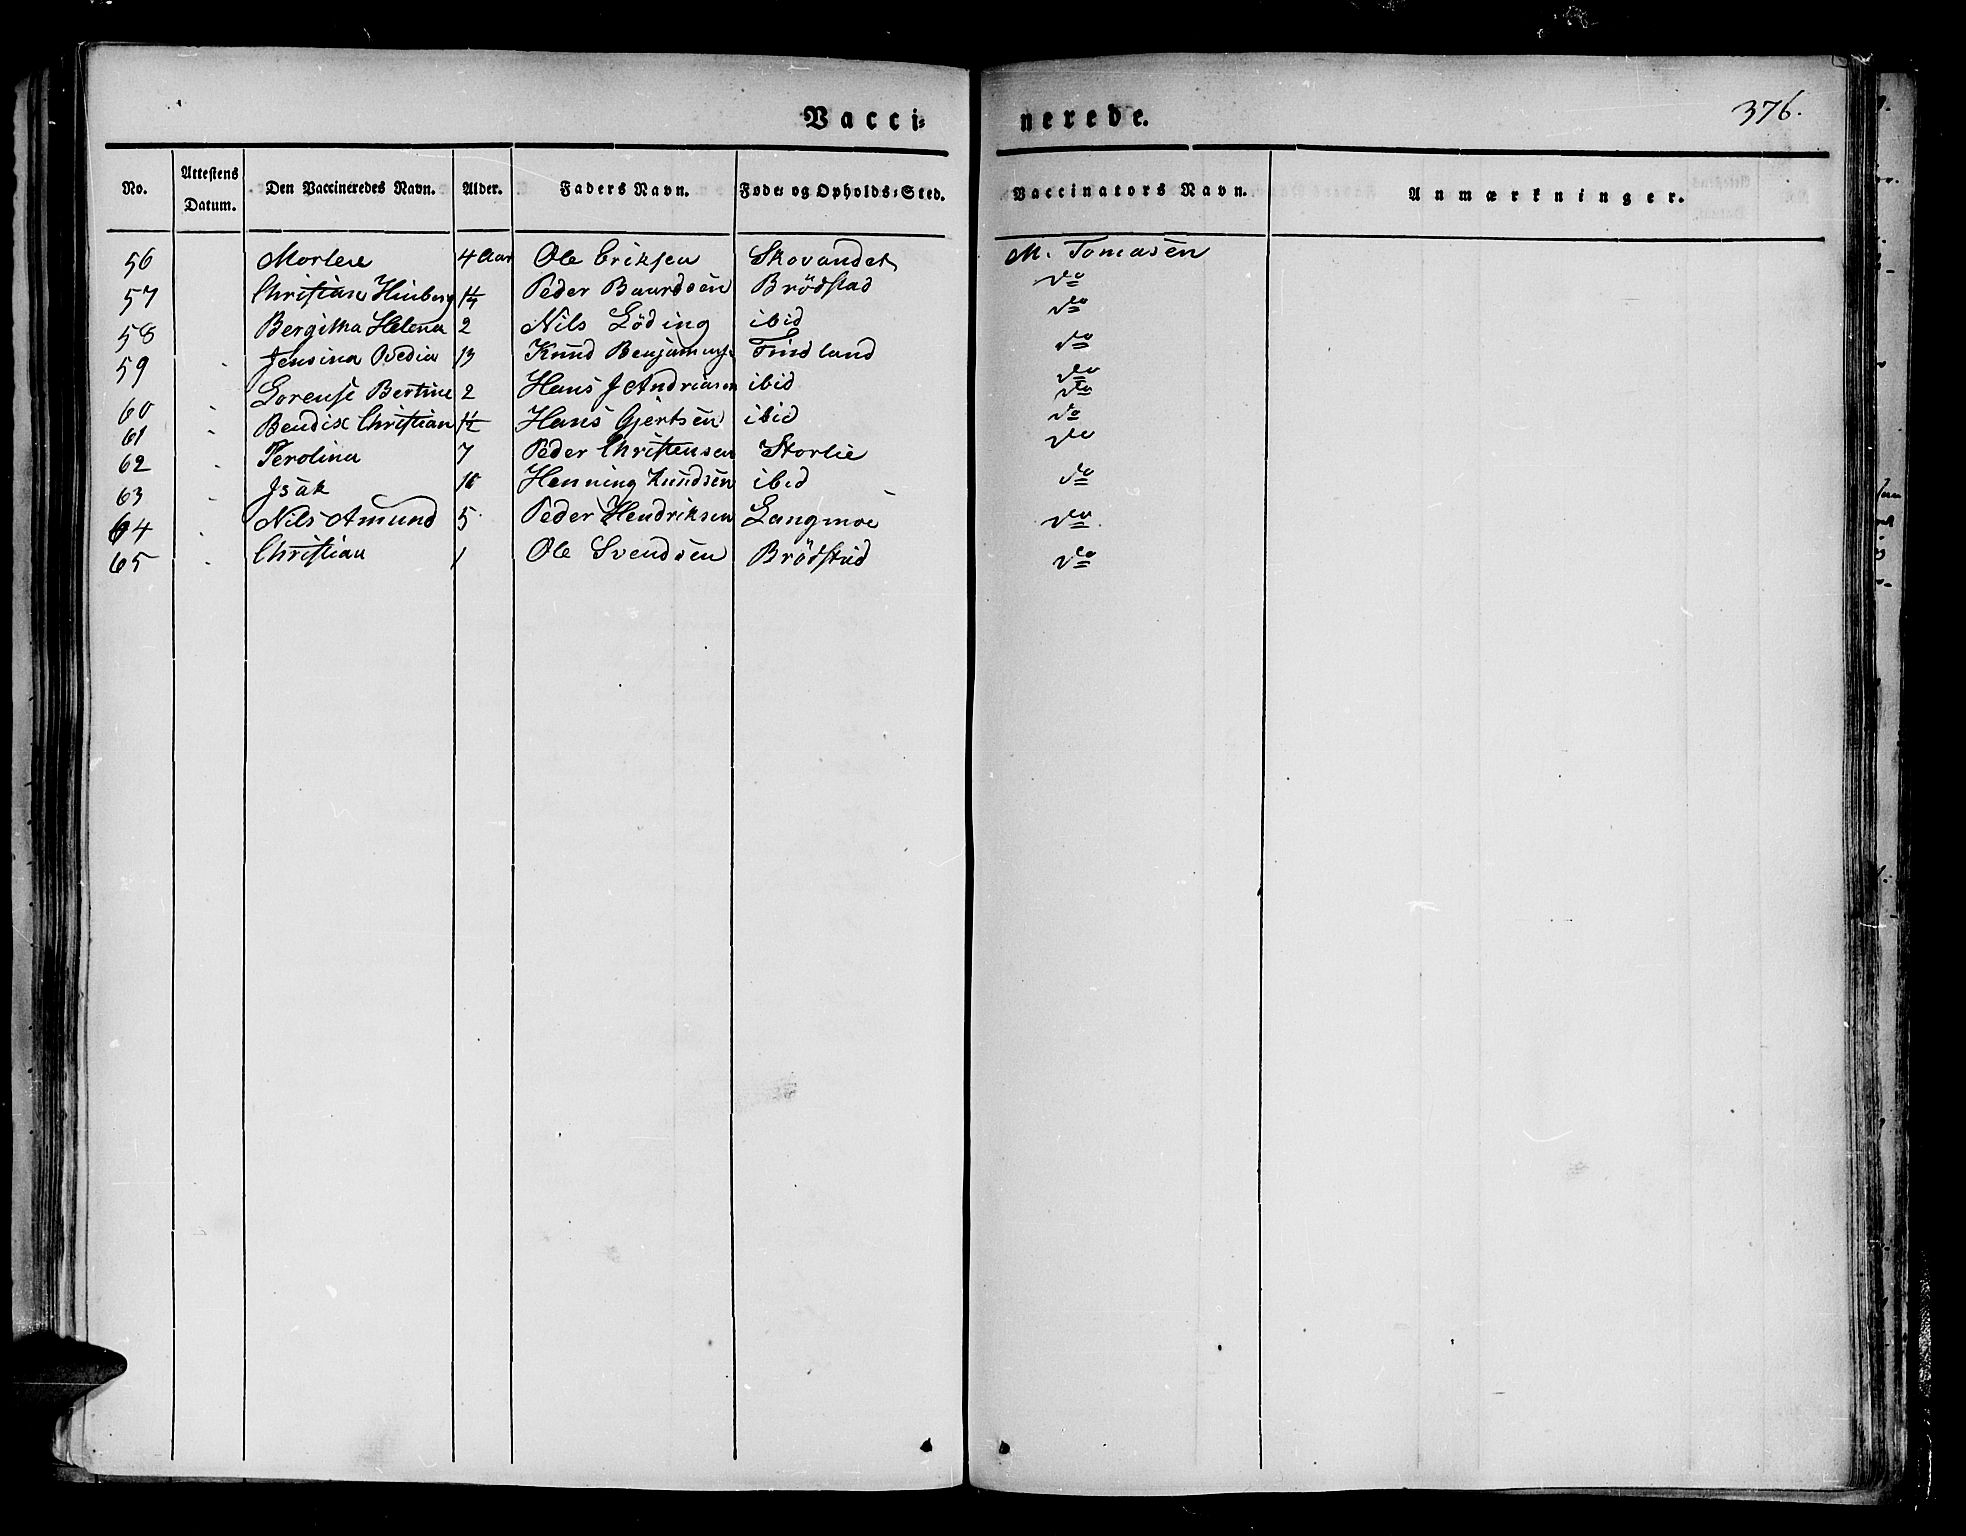 Vacci-nerede.
376.
No. Attestens Datum. Den Vaccineredes Navn. Alder. Faders Navn. Føde- og Opholds-Sted. Vaccinators Navn. Anmærkninger.
56 Morten 4 Aar Ole Eriksen Skovandet M. Tomasen
57 Christian Peder Baardsen Brödstad do
58 Bergitha Helena 2 Nils Löding ibid do
59 Jensina 13 Knud Benjamins. Findland do
60 Lorense Bertine 2 Hans J Andreasen ibid do
61 Bendix Christian 1½ Hans Gjertsen ibid do
62 Perolina 7 Peder Christensen Storlie do
63 Isak 10 Henning Knudsen ibid do
64 Nils Amund 5 Peder Hendriksen Langmoe do
65 Christian 1 Ole Svendsen Brödstad do